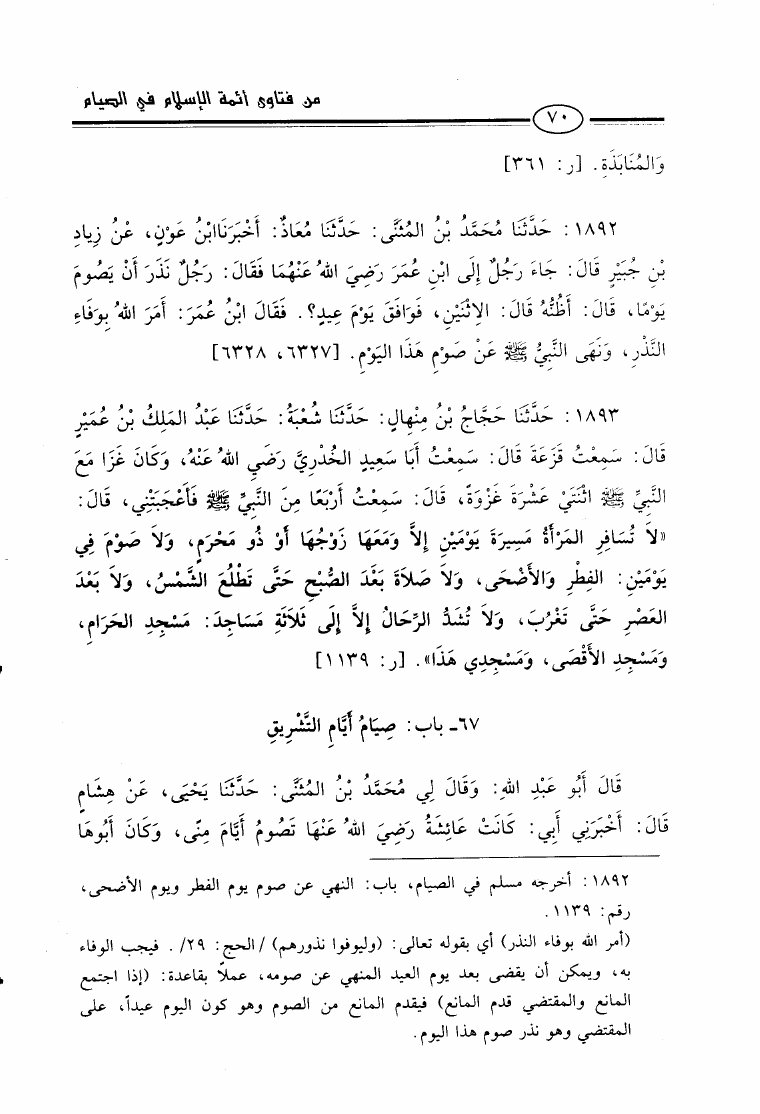 من فتاوى أئمة الإسلام في الصيام
٧٠
وَالمُنَابَذَةِ. [ر: ٣٦١]
١٨٩٢: حَدَّثَنَا مُحَمَّدُ بْنُ المُثَنَّى: حَدَّثَنَا مُعَاذٌ: أَخْبَرَنَاابْنُ عَوْنٍ، عَنْ زِيادِ
بْنِ جُبَيْرٍ قَالَ: جَاءَ رَجُلٌ إِلَى ابْنِ عُمَرَ رَضِيَ اللهُ عَنْهُمَا فَقَالَ: رَجُلٌ نَذَرَ أَنْ يَصُومَ
يَوْمًا، قَالَ: أَظُنُّهُ قَالَ: الِاثْنَيْنِ، فَوَافَقَ يَوْمَ عِيدٍ؟. فَقَالَ ابْنُ عُمَرَ: أَمَرَ اللهُ بِوَفَاءِ
النَّذْرِ، وَنَهَى النَّبِيُّ ﷺ عَنْ صَوْمِ هَذَا اليَوْمِ. [٦٣٢٧، ٦٣٢٨]
١٨٩٣: حَدَّثَنَا حَجَّاجُ بْنُ مِنْهالٍ: حَدَّثَنَا شُعْبَةُ: حَدَّثَنَا عَبْدُ المَلِكُ بْنُ عُمَيْرٍ
قَالَ: سَمِعْتُ قَزَعَةَ قَالَ: سَمِعْتُ أَبَا سَعِيدٍ الخُدْرِيَّ رَضِيَ اللهُ عَنْهُ، وَكَانَ غَزَا مَعَ
النَّبِيِّ ﷺ اثْنَتَيْ عَشْرَةَ غَزْوَةً، قَالَ: سَمِعْتُ أَرْبَعًا مِنَ النَّبِيِّ ﷺ فَأَعْجَبَتْنِي، قَالَ:
«لاَ تُسَافِرِ المَرْأَةُ مَسِيرَةَ يَوْمَيْنِ إِلاَّ وَمَعَهَا زَوْجُهَا أَوْ ذُو مَحْرَمٍ، وَلاَ صَوْمَ فِي
يَوْمَيْنِ: الفِطْرِ وَالأَضْحَى، وَلاَ صَلاَةَ بَعْدَ الصُّبْحِ حَتَّى تَطْلُعَ الشَّمْسُ، وَلاَ بَعْدَ
العَصْرِ حَتَّى تَغْرُبَ، وَلاَ تُشَدُّ الرِّحَالُ إِلاَّ إِلَى ثَلاَثَةِ مَسَاجِدَ: مَسْجِدِ الحَرَامِ،
وَمَسْجِدِ الأَقْصَى، وَمَسْجِدِي هَذَا». [ر: ١١٣٩]
٦٧ـ باب: صِيَامُ أَيَّامِ التَّشْرِيقِ
قَالَ أَبُو عَبْدِ اللهِ: وَقَالَ لِي مُحَمَّدُ بْنُ المُثَنَّى: حَدَّثَنَا يَحْيَى، عَنْ هِشَامٍ
قَالَ: أَخْبَرَنِي أَبِي: كَانَتْ عَائِشَةُ رَضِيَ اللهُ عَنْهَا تَصُومُ أَيَّامَ مِنًى، وَكَانَ أَبُوهَا
١٨٩٢: أخرجه مسلم في الصيام، باب: النهي عن صوم يوم الفطر ويوم الأضحى،
رقم: ١١٣٩.
(أمر الله بوفاء النذر) أي بقوله تعالى: (وليوفوا نذورهم) /الحج: ٢٩/. فيجب الوفاء
به، ويمكن أن يقضى بعد يوم العيد المنهي عن صومه، عملاً بقاعدة: (إذا اجتمع
المانع والمقتضي قدم المانع) فيقدم المانع من الصوم وهو كون اليوم عيداً، على
المقتضي وهو نذر صوم هذا اليوم.